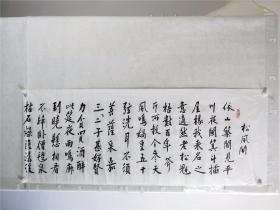 松風閣
依山築閣見平
川夜闌箕斗插
屋椽我來名之
意適然老松魁
梧數百年斧
斤所赦今參天
風鳴媧皇五十
弦洗耳不須
菩薩泉嘉
三二子甚好賢
力貧買酒醉
此筵夜雨鳴廊
到曉懸相看
不歸臥僧氈泉
枯石燥復潺湲